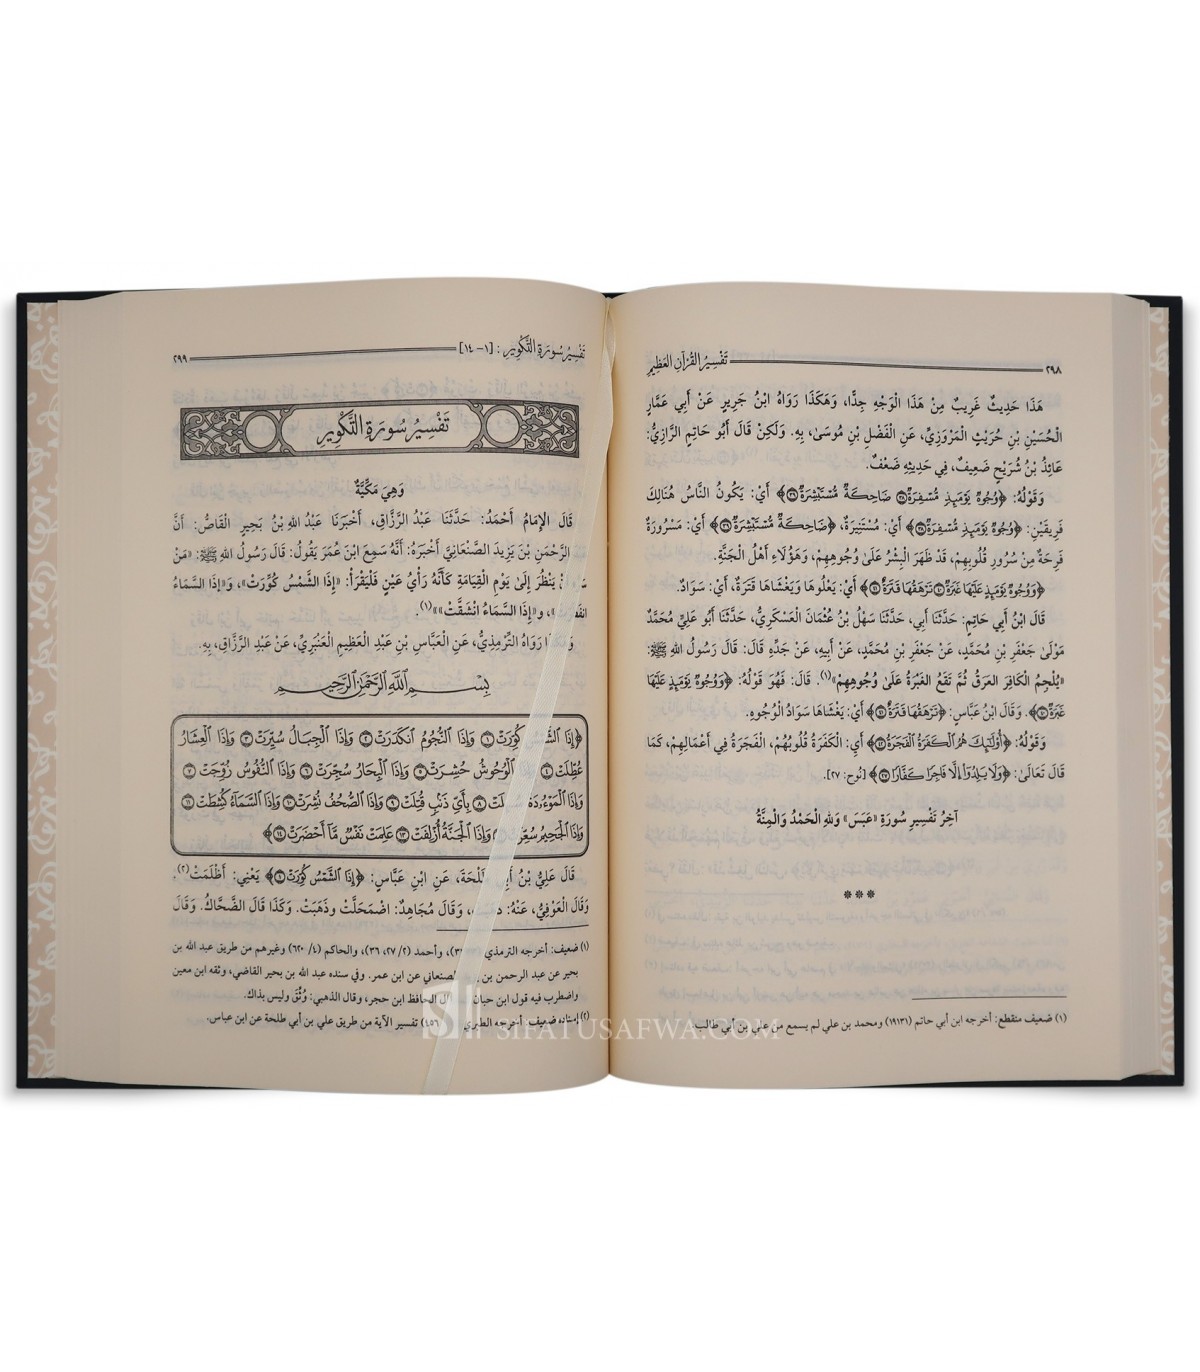 ٢٩٨ تَفْسِيرُ القُرْآنِ العَظِيمِ
هَذَا حَدِيثٌ غَرِيبٌ مِنْ هَذَا الْوَجْهِ جِدًّا، وَهَكَذَا رَوَاهُ ابْنُ جَرِيرٍ عَنْ أَبِي عَمَّارٍ
الْحُسَيْنِ بْنِ حُرَيْثٍ الْمَرْوَزِيِّ، عَنِ الْفَضْلِ بْنِ مُوسَى، بِهِ. وَلَكِنْ قَالَ أَبُو حَاتِمٍ الرَّازِيُّ:
عَائِذُ بْنُ شُرَيْحٍ ضَعِيفٌ، فِي حَدِيثِهِ ضَعْفٌ.
وَقَوْلُهُ: ﴿وُجُوهٌ يَوْمَئِذٍ مُّسْفِرَةٌ ٣٨ ضَاحِكَةٌ مُّسْتَبْشِرَةٌ ٣٩﴾ أَيْ: يَكُونُ النَّاسُ هُنَالِكَ
فَرِيقَيْنِ: ﴿وُجُوهٌ يَوْمَئِذٍ مُّسْفِرَةٌ ٣٨﴾ أَيْ: مُسْتَنِيرَةٌ، ﴿ضَاحِكَةٌ مُّسْتَبْشِرَةٌ ٣٩﴾ أَيْ: مَسْرُورَةٌ
فَرِحَةٌ مِنْ سُرُورِ قُلُوبِهِمْ، قَدْ ظَهَرَ الْبِشْرُ عَلَى وُجُوهِهِمْ، وَهَؤُلَاءِ أَهْلُ الْجَنَّةِ.
﴿وَوُجُوهٌ يَوْمَئِذٍ عَلَيْهَا غَبَرَةٌ ٤٠ تَرْهَقُهَا قَتَرَةٌ ٤١﴾ أَيْ: يَعْلُوهَا وَيَغْشَاهَا قَتَرَةٌ، أَيْ: سَوَادٌ.
قَالَ ابْنُ أَبِي حَاتِمٍ: حَدَّثَنَا أَبِي، حَدَّثَنَا سَهْلُ بْنُ عُثْمَانَ الْعَسْكَرِيُّ، حَدَّثَنَا أَبُو عَلِيٍّ مُحَمَّدٌ
مَوْلَى جَعْفَرِ بْنِ مُحَمَّدٍ، عَنْ جَعْفَرِ بْنِ مُحَمَّدٍ، عَنْ أَبِيهِ، عَنْ جَدِّهِ قَالَ: قَالَ رَسُولُ اللهِ ﷺ:
«يُلْجِمُ الْكَافِرَ الْعَرَقُ ثُمَّ تَقَعُ الْغَبَرَةُ عَلَى وُجُوهِهِمْ»(١). قَالَ: فَهُوَ قَوْلُهُ: ﴿وَوُجُوهٌ يَوْمَئِذٍ عَلَيْهَا
غَبَرَةٌ ٤٠﴾. وَقَالَ ابْنُ عَبَّاسٍ: ﴿تَرْهَقُهَا قَتَرَةٌ ٤١﴾ أَيْ: يَغْشَاهَا سَوَادُ الْوُجُوهِ.
وَقَوْلُهُ: ﴿أُوْلَٰٓئِكَ هُمُ ٱلْكَفَرَةُ ٱلْفَجَرَةُ ٤٢﴾ أَيِ: الْكَفَرَةُ قُلُوبُهُمْ، الْفَجَرَةُ فِي أَعْمَالِهِمْ، كَمَا
قَالَ تَعَالَى: ﴿وَلَا يَلِدُوٓاْ إِلَّا فَاجِرًا كَفَّارًا ٢٧﴾ [نُوح: ٢٧].
آخِرُ تَفْسِيرِ سُورَةِ «عَبَسَ» وَلِلهِ الْحَمْدُ وَالْمِنَّةُ
***
(١) ضعيف منقطع: أخرجه ابن أبي حاتم (١٩١٣١) ومحمد بن علي لم يسمع من علي بن أبي طالب.
تَفْسِيرُ سُورَةِ التَّكْوِيرِ: [١-١٤] ٢٩٩
تَفْسِيرُ سُورَةِ التَّكْوِيرِ
وَهِيَ مَكِّيَّةٌ
قَالَ الْإِمَامُ أَحْمَدُ: حَدَّثَنَا عَبْدُ الرَّزَّاقِ، أَخْبَرَنَا عَبْدُ اللهِ بْنُ بَحِيرٍ الْقَاصُّ: أَنَّ
الرَّحْمَنِ بْنَ يَزِيدَ الصَّنْعَانِيَّ أَخْبَرَهُ: أَنَّهُ سَمِعَ ابْنَ عُمَرَ يَقُولُ: قَالَ رَسُولُ اللهِ ﷺ: «مَنْ
أَنْ يَنْظُرَ إِلَى يَوْمِ الْقِيَامَةِ كَأَنَّهُ رَأْيُ عَيْنٍ فَلْيَقْرَأْ: «إِذَا الشَّمْسُ كُوِّرَتْ»، وَ«إِذَا السَّمَاءُ
»، وَ«إِذَا السَّمَاءُ انْشَقَّتْ»»(١).
رَوَاهُ التِّرْمِذِيُّ، عَنِ الْعَبَّاسِ بْنِ عَبْدِ الْعَظِيمِ الْعَنْبَرِيِّ، عَنْ عَبْدِ الرَّزَّاقِ، بِهِ.
بِسْمِ ٱللَّهِ ٱلرَّحْمَٰنِ ٱلرَّحِيمِ
﴿إِذَا ٱلشَّمْسُ كُوِّرَتْ ١ وَإِذَا ٱلنُّجُومُ ٱنكَدَرَتْ ٢ وَإِذَا ٱلْجِبَالُ سُيِّرَتْ ٣ وَإِذَا ٱلْعِشَارُ
عُطِّلَتْ ٤ ٱلْوُحُوشُ حُشِرَتْ ٥ وَإِذَا ٱلْبِحَارُ سُجِّرَتْ ٦ وَإِذَا ٱلنُّفُوسُ زُوِّجَتْ ٧
وَإِذَا ٱلْمَوْءُۥدَةُ سُئِلَتْ ٨ بِأَىِّ ذَنۢبٍ قُتِلَتْ ٩ وَإِذَا ٱلصُّحُفُ نُشِرَتْ ١٠ وَإِذَا ٱلسَّمَآءُ كُشِطَتْ ١١
وَإِذَا ٱلْجَحِيمُ سُعِّرَتْ ١٢ وَإِذَا ٱلْجَنَّةُ أُزْلِفَتْ ١٣ عَلِمَتْ نَفْسٌ مَّآ أَحْضَرَتْ ١٤﴾
قَالَ عَلِيُّ بْنُ أَبِي طَلْحَةَ، عَنِ ابْنِ عَبَّاسٍ: ﴿إِذَا ٱلشَّمْسُ كُوِّرَتْ ١﴾ يَعْنِي: أَظْلَمَتْ(٢).
وَقَالَ الْعَوْفِيُّ، عَنْهُ: ذَهَبَتْ، وَقَالَ مُجَاهِدٌ: اضْمَحَلَّتْ وَذَهَبَتْ. وَكَذَا قَالَ الضَّحَّاكُ. وَقَالَ
(١) ضعيف: أخرجه الترمذي، وأحمد (٢/ ٢٧، ٣٦)، والحاكم (٤/ ٦٢٠) وغيرهم من طريق عبد الله بن
بحير عن عبد الرحمن بن الصنعاني عن ابن عمر. وفي سنده عبد الله بن بحير القاضي، وثقه ابن معين
واضطرب فيه قول ابن حبان الحافظ ابن حجر، وقال الذهبي: وُثِّقَ وليس بذاك.
(٢) إسناده ضعيف: أخرجه الطبري تفسير الآية من طريق علي بن أبي طلحة عن ابن عباس.
SIFATUSAFWA.COM